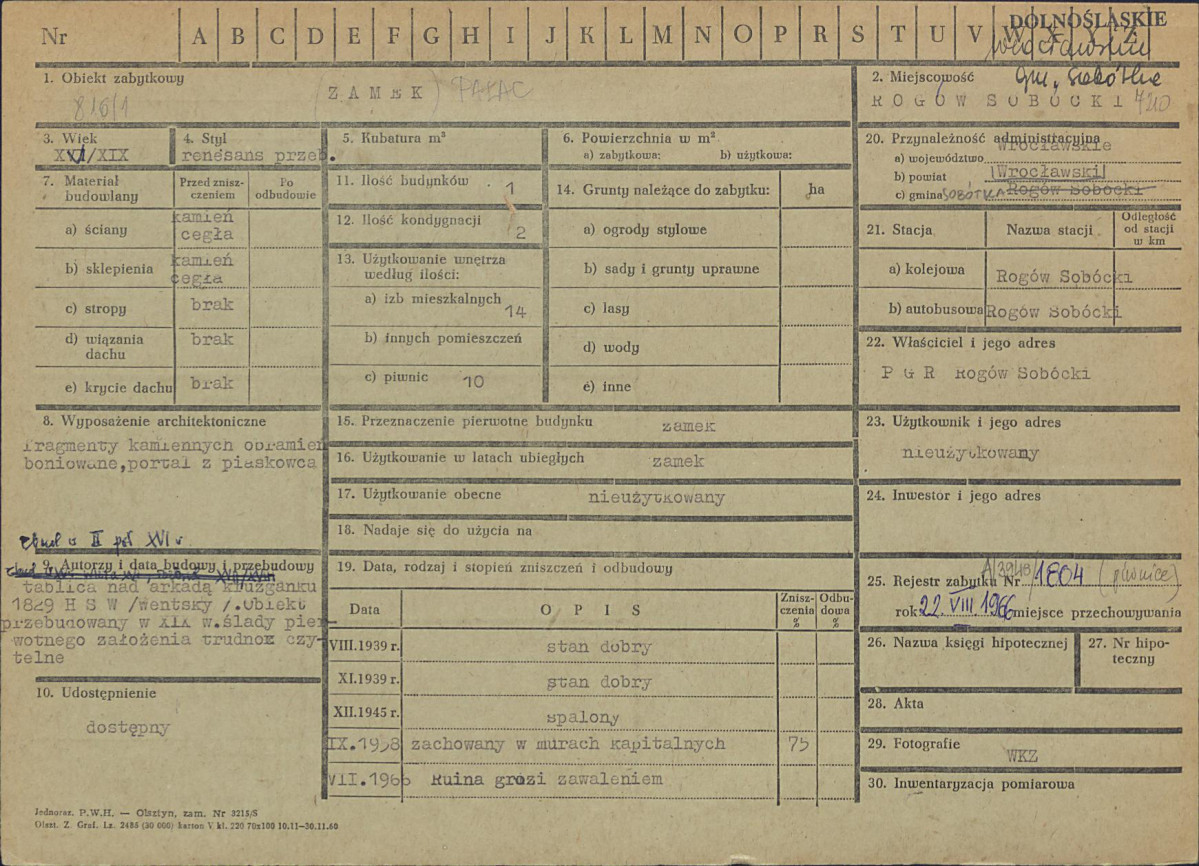 Nr A B C D E F G H I J K L M N O P R S T U V W X Y Z
DOLNOŚLĄSKIE
wrocławskie
gm. Sobótka
1. Obiekt zabytkowy
816/1
(ZAMEK) PAŁAC
2. Miejscowość
ROGÓW SOBÓCKI
3. Wiek
XVI/XIX
4. Styl
renesans przeb.
5. Kubatura m³
6. Powierzchnia w m²
a) zabytkowa: b) użytkowa:
20. Przynależność administracyjna
a) województwo wrocławskie
b) powiat Wrocławski
c) gmina SOBÓTKA Rogów Sobócki
7. Materiał budowlany
Przed zniszczeniem
Po odbudowie
a) ściany kamień cegła
b) sklepienia kamień cegła
c) stropy brak
d) wiązania dachu brak
e) krycie dachu brak
11. Ilość budynków 1
12. Ilość kondygnacji 2
13. Użytkowanie wnętrza według ilości:
a) izb mieszkalnych 14
b) innych pomieszczeń
c) piwnic 10
14. Grunty należące do zabytku: ha
a) ogrody stylowe
b) sady i grunty uprawne
c) lasy
d) wody
e) inne
21. Stacja Nazwa stacji Odległość od stacji w km
a) kolejowa Rogów Sobócki
b) autobusowa Rogów Sobócki
22. Właściciel i jego adres
P G R Rogów Sobócki
8. Wyposażenie architektoniczne
fragmenty kamiennych obramień
boniowane,portal z piaskowca
15. Przeznaczenie pierwotne budynku zamek
16. Użytkowanie w latach ubiegłych zamek
17. Użytkowanie obecne nieużytkowany
18. Nadaje się do użycia na
23. Użytkownik i jego adres
nieużytkowany
24. Inwestor i jego adres
zbud w II poł XVI w
9. Autorzy i data budowy i przebudowy
tablica nad arkadą krużganku
1829 H S W /Wentsky /.Obiekt
przebudowany w XIX w.ślady pier
wotnego założenia trudno czy-
telne
10. Udostępnienie
dostępny
19. Data, rodzaj i stopień zniszczeń i odbudowy
Data OPIS Zniszczenia % Odbudowa %
VIII.1939 r. stan dobry
XI.1939 r. stan dobry
XII.1945 r. spalony
IX.1958 zachowany w murach kapitalnych 75
VII.1966 Ruina grozi zawaleniem
25. Rejestr zabytku Nr 1804 (piwnice)
rok 22.VIII.1966 miejsce przechowywania
26. Nazwa księgi hipotecznej
27. Nr hipoteczny
28. Akta
29. Fotografie
WKZ
30. Inwentaryzacja pomiarowa
Jednoraz. P.W.H. — Olsztyn, zam. Nr 3215/S
Olszt. Z. Graf. Lz. 2485 (30 000) karton V kl. 220 70x100 10.11—30.11.60